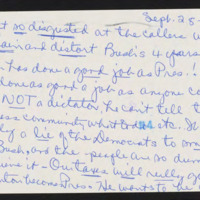 Sept. 25-
t so disgusted at the callers w
air and distort Bush's 4 years
has done a good job as Pres.!
done as good a job as anyone co
NOT a dictator he can't tell t
ess community what to do etc. It
by a lie of the Democrats to
Bush and the people are so dum
it. Our taxes will really go
becomes Pres. He wants to be